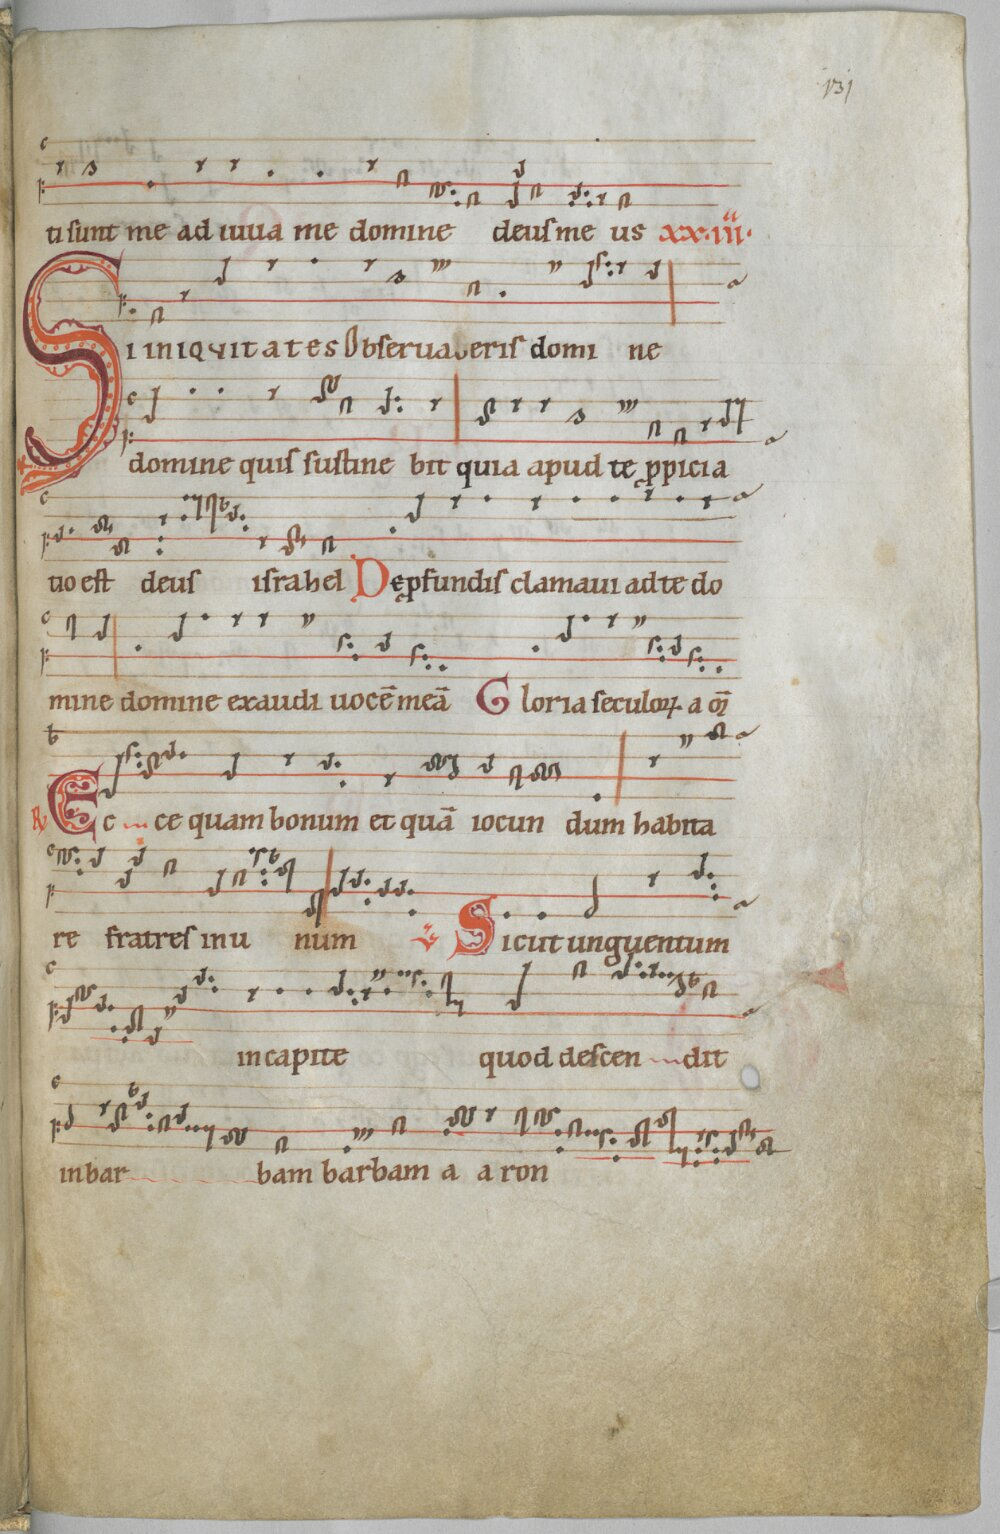 131
ti sunt me ad iuua me domine deus me us xx.iii.
SI INIQVITATES Obseruaueris domi ne
domine quis sustine bit quia apud te ppicia
tio est deus israhel Depfundis clamaui ad te do
mine domine exaudi uocē meā Gloria seculoꝝ a
℟ Ec ce quam bonum et quā iocun dum habita
re fratres in u num ℣ Sicut unguentum
in capite quod descen dit
in bar bam barbam a a ron